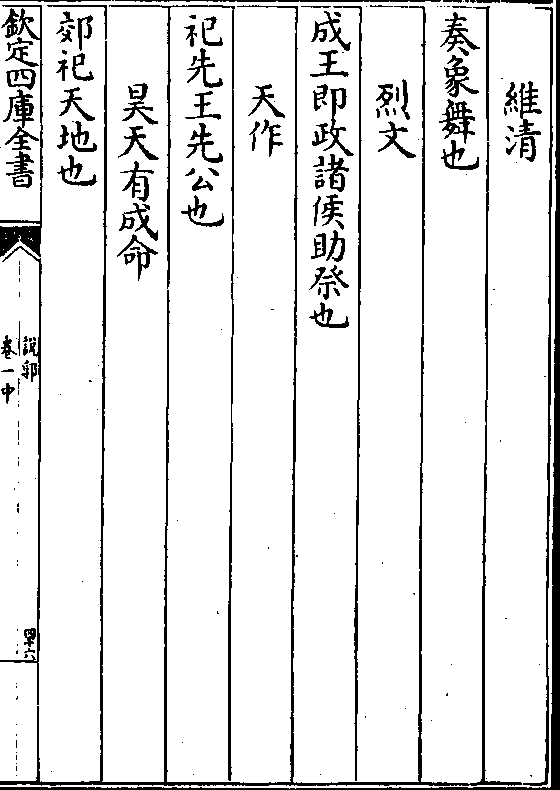 維清
奏象舞也
烈文
成王即政諸侯助祭也
天作
祀先王先公也
昊天有成命
郊祀天地也
欽定四庫全書
說郛
卷一中
四十六